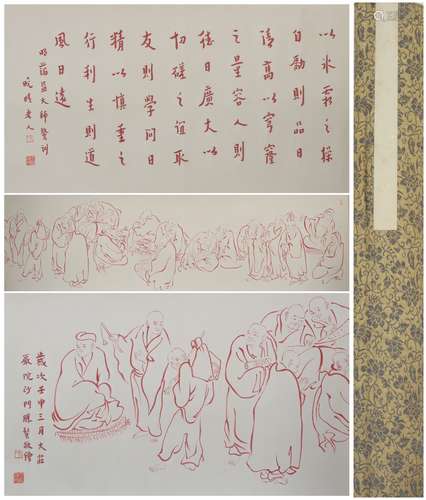 以冰霜之操
自勵則品日
清高以穹窿
之量容人則
德日廣大以
切磋之誼取
友則學問日
精以慎重之
行利生則道
風日遠
明蕅益大師警訓
晚晴老人
歲次壬申三月大莊
嚴院沙門勝髻敬繪